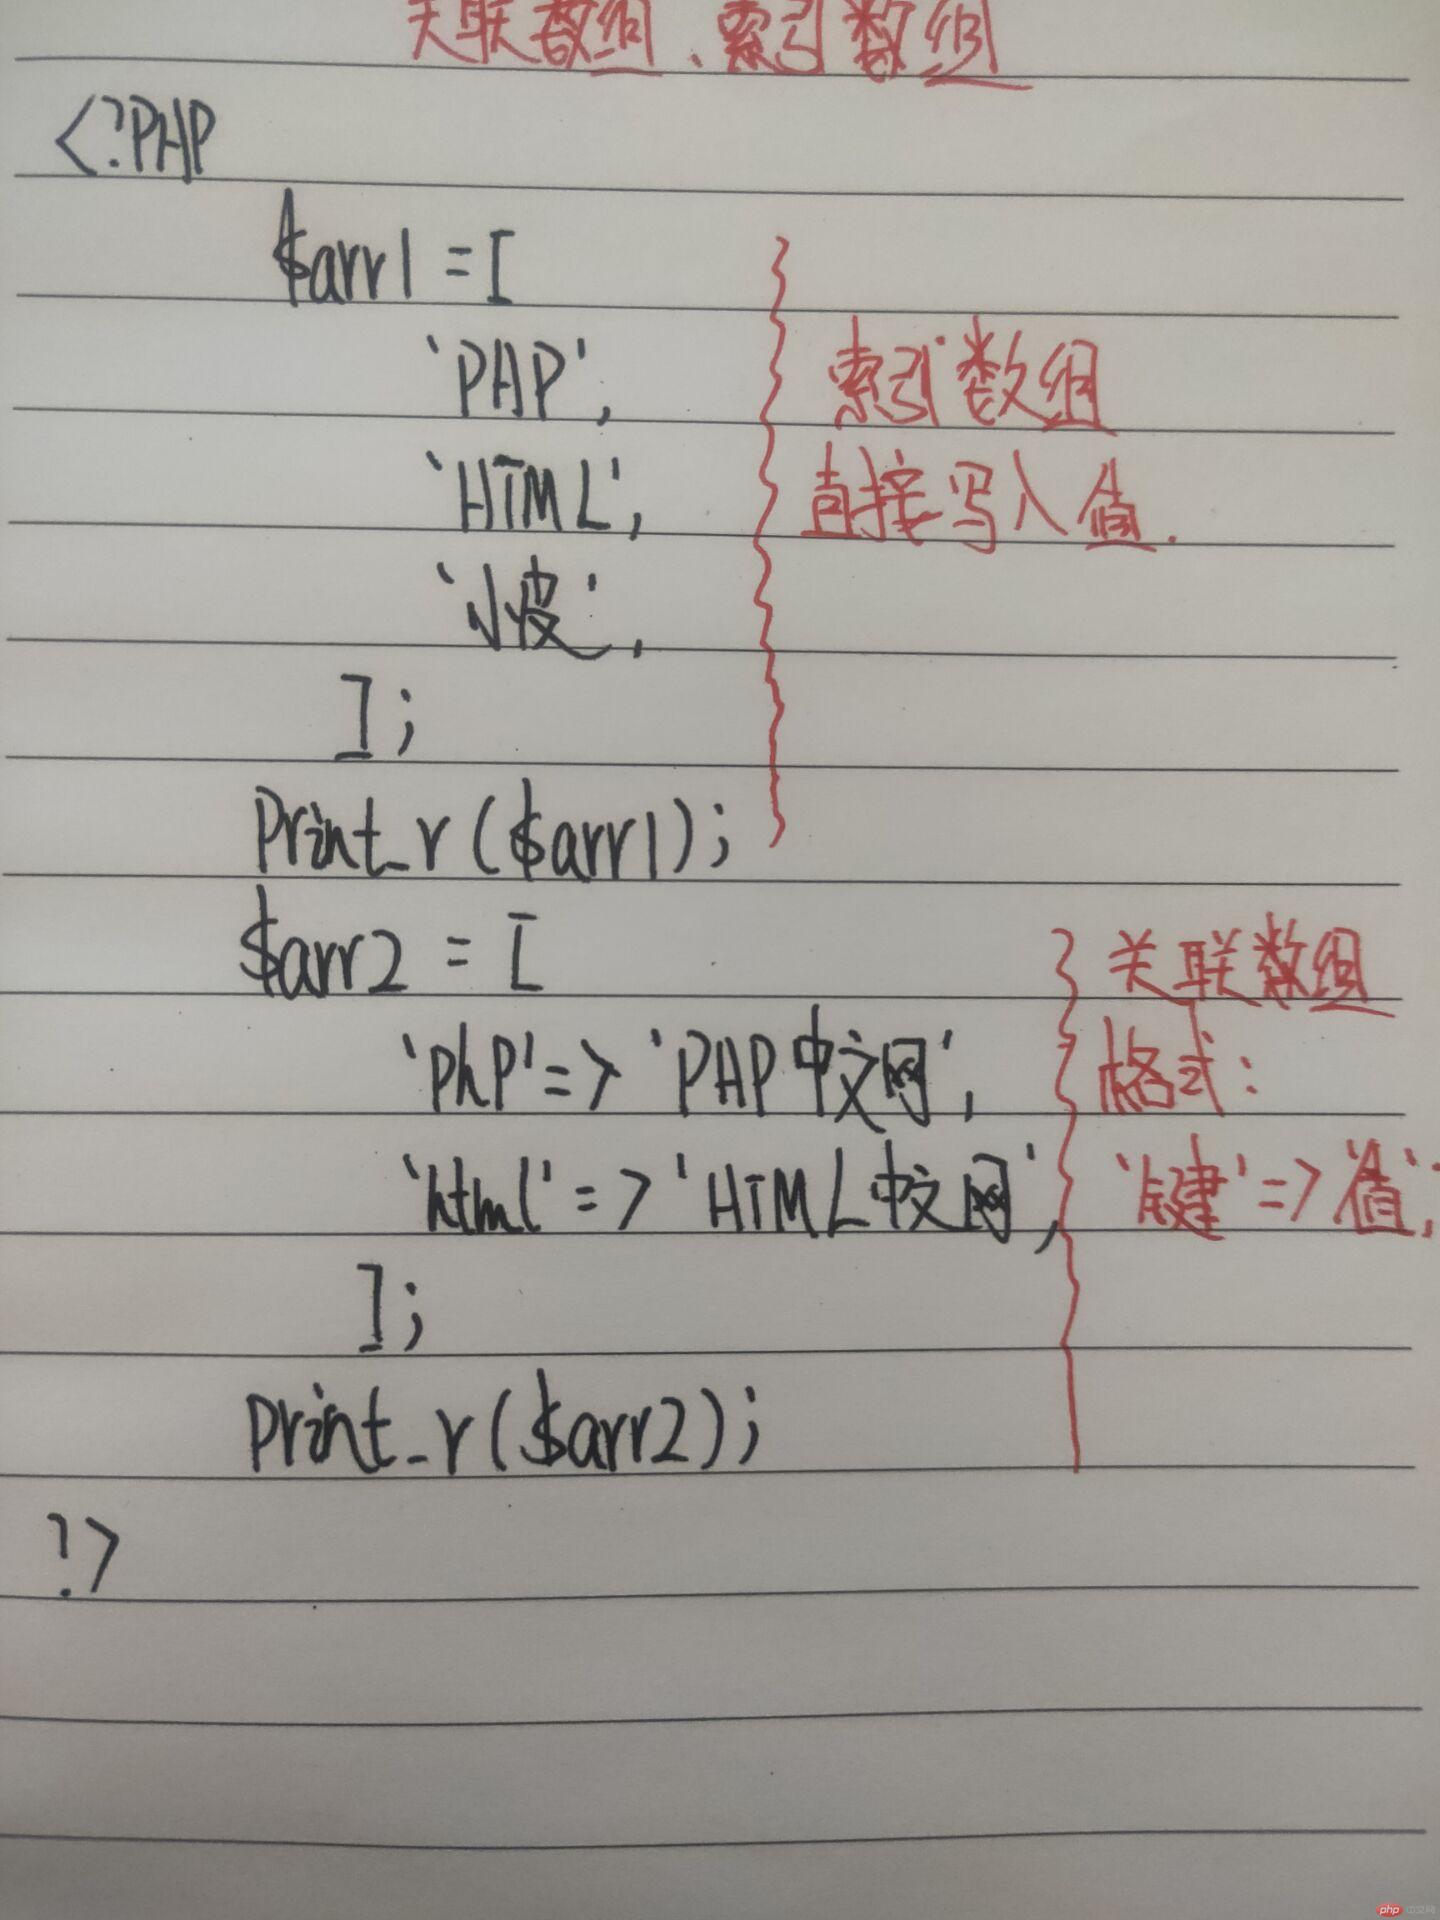 关联数组、索引数组
<?PHP
$arr1 = [
'PHP', 索引数组
'HTML', 直接写入值.
'小皮',
];
Print_r($arr1);
$arr2 = [ 关联数组
'php' => 'PHP中文网', 格式:
'html' => 'HTML中文网', '键' => '值',
];
print_r($arr2);
?>
php 中文网